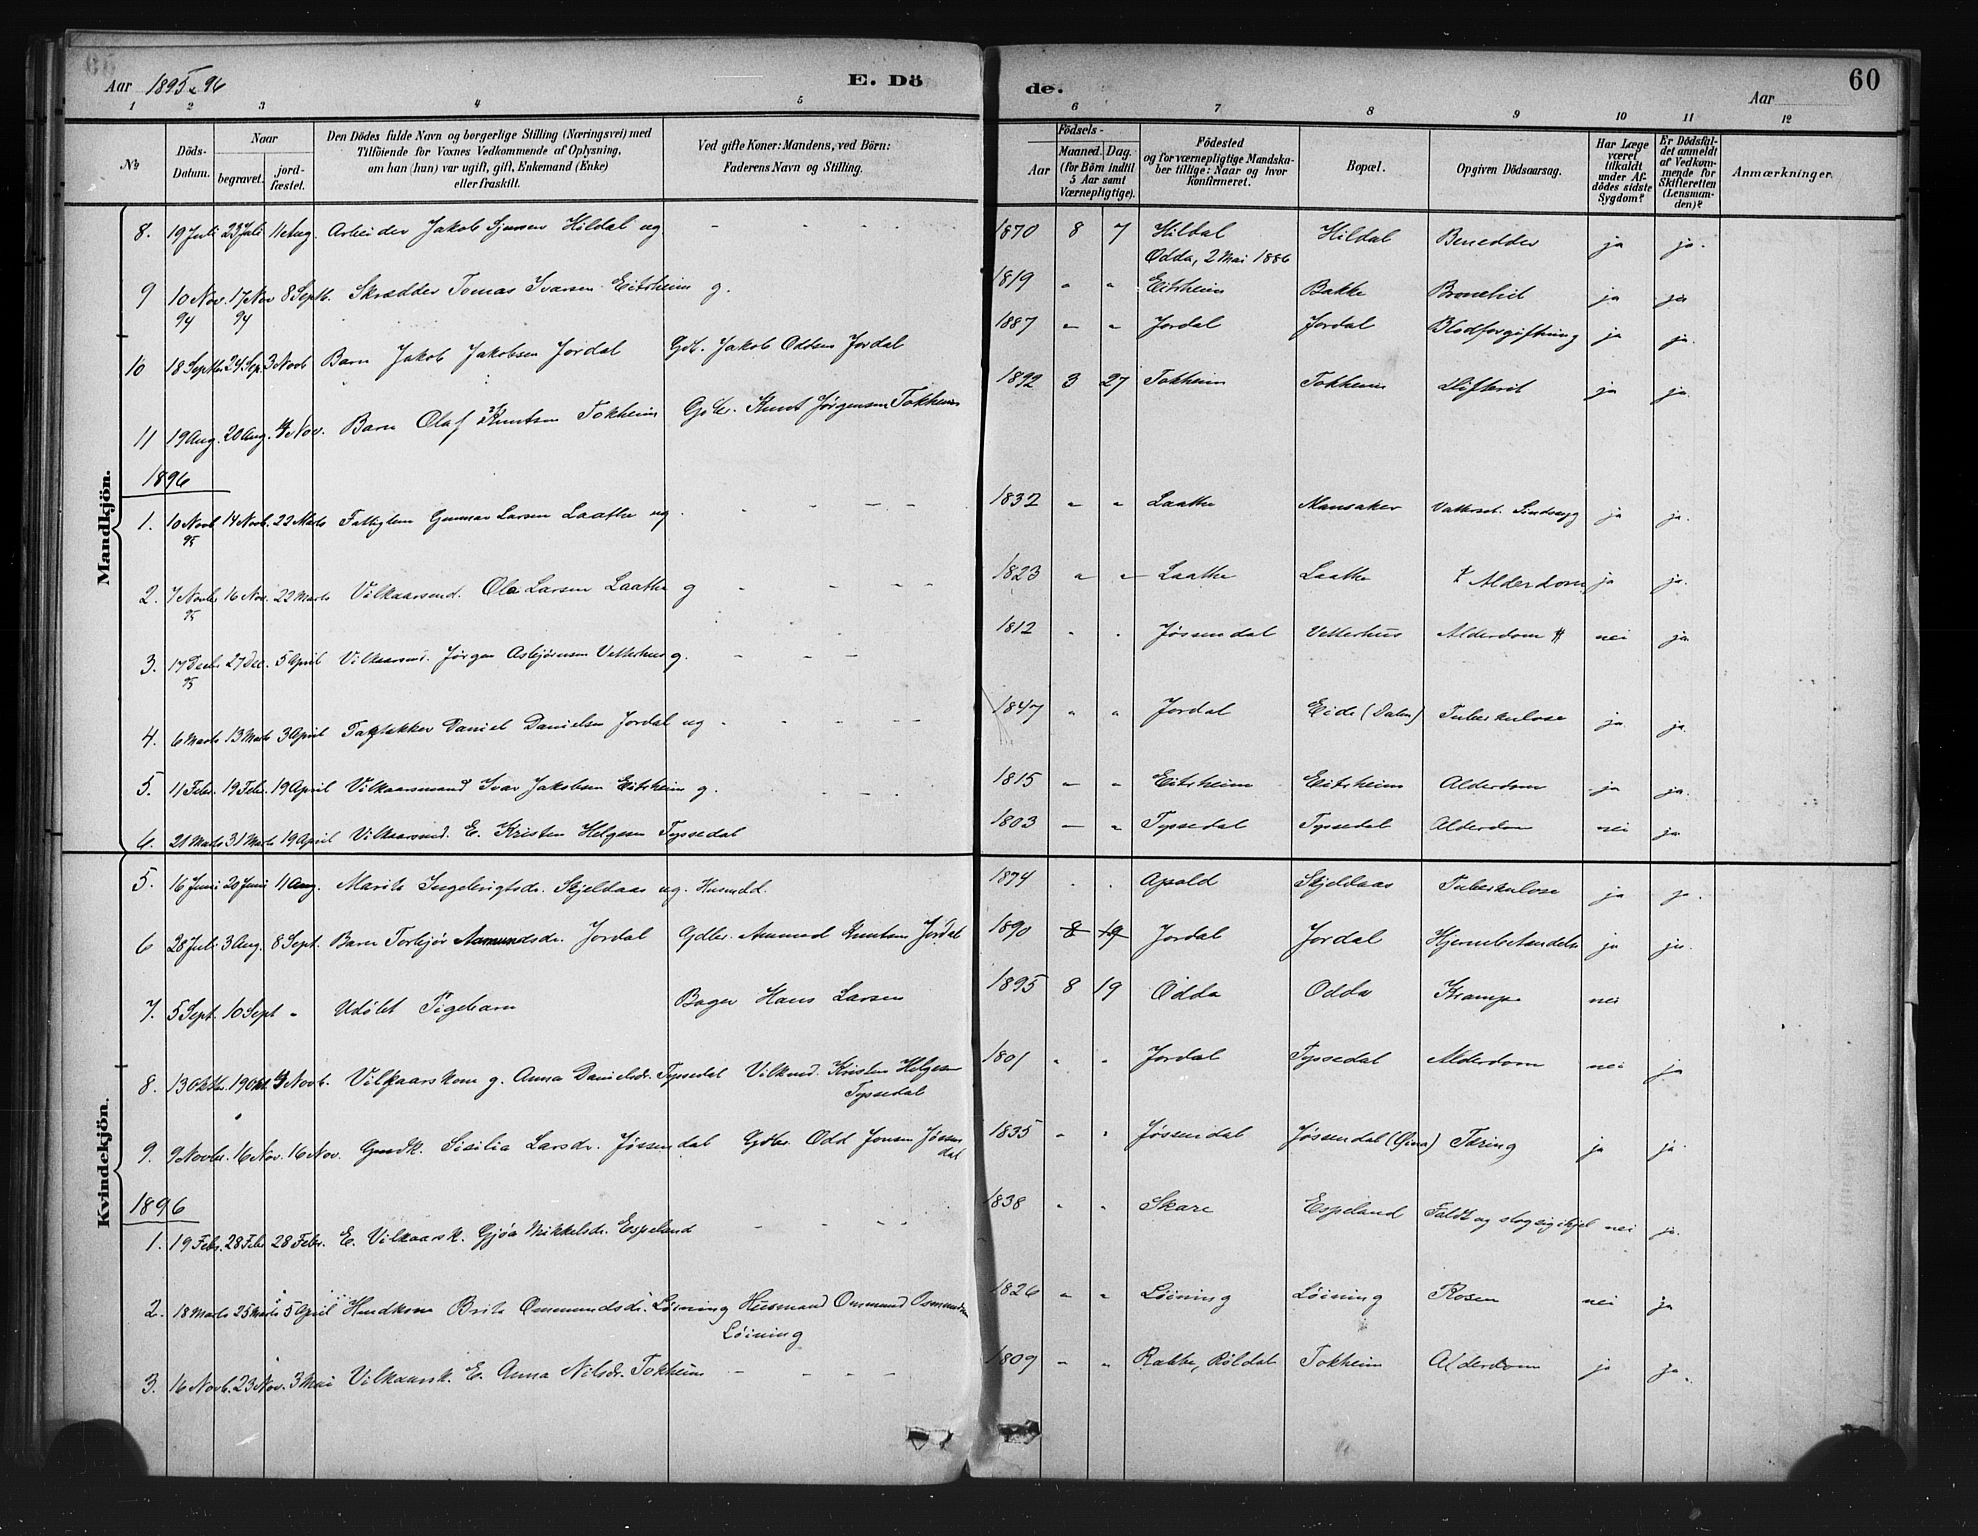 66
Aar 1895 & 96
E. Dö
de.
Aar
60
1 2 3 4 5 6 7 8 9 10 11 12
№
Döds-Datum.
Naar
begravet.
jord-fæstet.
Den Dödes fulde Navn og borgerlige Stilling (Næringsvei) med
Tilföiende for Voxnes Vedkommende af Oplysning,
om han (hun) var ugift, gift, Enkemand (Enke)
eller fraskilt.
Ved gifte Koner: Mandens, ved Börn:
Faderens Navn og Stilling.
Födsels-
Aar
Maaned.
Dag.
(for Börn indtil
5 Aar samt
Værnepligtige).
Födested
og for værnepligtige Mandska-
ber tillige: Naar og hvor
Konfirmeret.
Bopæl.
Opgiven Dödsaarsag.
Har Læge
været
tilkaldt
under Af-
dödes sidste
Sygdom?
Er Dödsfal-
det anmeldt
af Vedkom-
mende for
Skifteretten
(Lensman-
den)?
Anmærkninger.
Mandkjön.
8. 19 Juli 23 Juli 11 Aug. Arbeider Jakob Hildal ug - - - - 1870 8 7 Hildal Hildal ja ja.
Odda, 2 Mai 1886
9 10 Nov. 17 Nov 8 Septb. Skrædder Tomas Ivarsen Eitrheim g. 1819 " " Eitrheim Bakke ja ja
94 94
10 18 Septbr. 24 Sep. 3 Novb Barn Jakob Jakobsen Jordal Gdb. Jakob Oddsen Jordal 1887 " " Jordal Jordal Blodforgiftning ja ja.
11 19 Aug. 20 Aug. 4 Nov. Barn Olaf Knutsen Tokheim Gdbr. Knut Jørgensen Tokheim 1892 3 27 Tokheim Tokheim Difterit ja ja.
1896
1. 10 Novb 14 Novb. 22 Marts Fattiglem Gunnar Larsen Laathe ug. - - - - 1832 " " Laathe Mansaker Sindssyg ja ja.
95
2. 7 Novbr 16 Nov. 22 Marts Vilkaarsmd. Ola Larsen Laathe g - - - - 1823 " " Laathe Laathe Alderdom ja ja.
95
3. 17 Decb. 27 Dec. 5 April Vilkaarsmd. Jørgen Asbjørnsen Vetterhus g. - - - 1812 " " Jøssendal Vetterhus Alderdom nei ja
95
4. 6 Marts 13 Marts 3 April Daniel Danielsen Jordal ug - - - - 1847 " " Jordal Eide (Dalen) Tuberkulose ja ja.
5. 11 Febr. 19 Febr. 19 April Vilkaarsmand Ivar Jakobsen Eitrheim g. - - - 1815 " " Eitrheim Eitrheim Alderdom ja ja.
6. 21 Marts 31 Marts 19 April Vilkaarsmd. E. Kristen Helgesen Tyssedal 1803 " " Tyssedal Tyssedal Alderdom nei ja
Kvindekjön.
5. 16 Juni 20 Juni 11 Aug. Marita Ingebrigtsdr. Skjeldaas ug. Husmdd. 1874 " " Apold Skjeldaas Tuberkulose ja ja.
6 28 Juli 3 Aug. 8 Sept. Barn Torbjør Aamundsdr. Jordal Gdbr. Aamund Knutsen Jordal 1890 8 19 Jordal Jordal Hjernebetændelse ja ja.
7. 5 Sept. 10 Sept " Udøbt Pigebarn Bager Hans Larsen 1895 8 19 Odda Odda Krampe nei
8. 13 Oktbr. 19 Okt 3 Novb. Vilkaarskone g. Anna Danielsdr. Tyssedal Vilkmd. Kristen Helgesen 1801 " " Jordal Tyssedal Alderdom nei ja
Tyssedal
9. 9 Novbr. 16 Nov. 16 Nov. Gmdk. Sisilia Larsdr. Jøssendal Gdbr. Odd Jonsen Jøssen 1835 " " Jøssendal Jøssendal Tæring ja ja
dal
1896
1. 19 Febr. 28 Febr 28 Febr. E. Vilkaarsk. Gjøa Mikkelsdr. Espeland - - - - 1838 " " Skare Espeland Faldt og slog sig ihjel nei ja.
2. 18 Marts 25 Marts 5 April Brita Ommundsdr. Løining Husmand Ommund Osmundsen 1826 " " Løining Løining Rosen nei ja
Løining
3. 16 Novb. 23 Nov. 3 Mai Vilkaarsk. E. Anna Nilsdr. Tokheim - - - - 1809 " " Rabbe, Røldal Tokheim Alderdom ja ja.